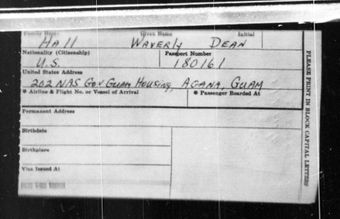 Family Name Given Name Initial
Hall Waverly Dean
Nationality (Citizenship) Passport Number
U.S. 180161
United States Address
202 NAS Gov Guam Housing, Agana, Guam
Airline & Flight No. or Vessel of Arrival Passenger Boarded At
Permanent Address
Birthdate
Birthplace
Visa Issued At
PLEASE PRINT IN BLOCK CAPITAL LETTERS